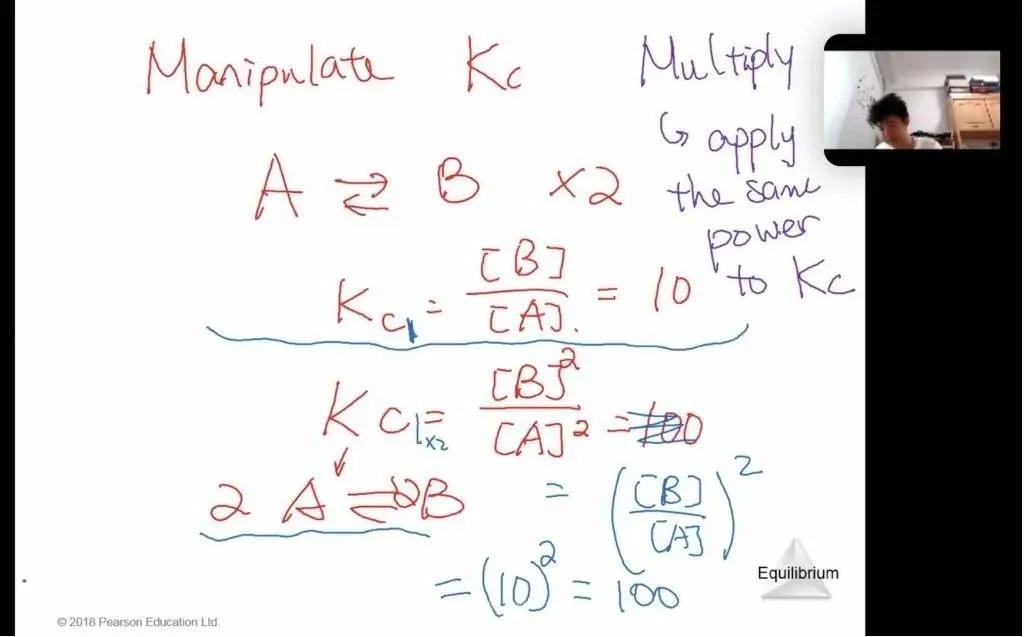 Manipulate Kc
Multiply
↳ apply
the same
power
to Kc
A ⇌ B ×2
Kc1 = [B]/[A] = 10
Kc1×2 = [B]²/[A]² = 100
2A ⇌ 2B
= ([B]/[A])²
= (10)² = 100
Equilibrium
© 2018 Pearson Education Ltd.